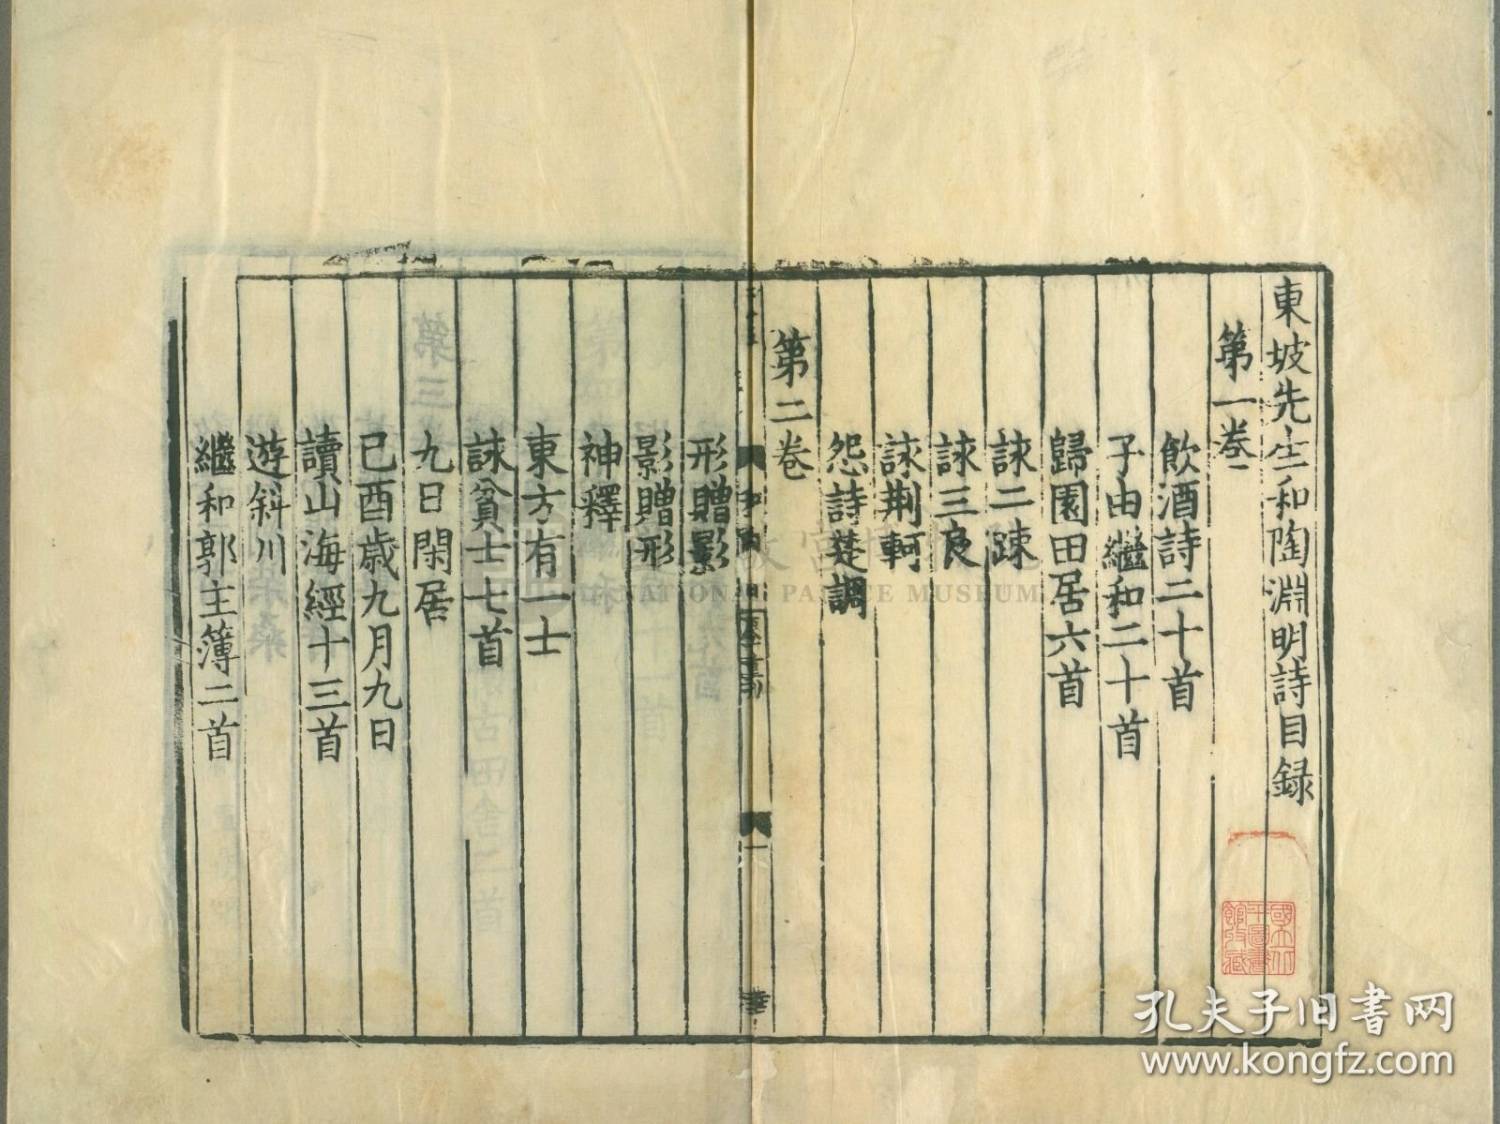 東坡先生和陶淵明詩目録
第一卷
飲酒詩二十首
子由繼和二十首
歸園田居六首
詠二疎
詠三良
詠荆軻
怨詩楚調
第二卷
形贈影
影贈形
神釋
東方有一士
詠貧士七首
九日閑居
己酉歲九月九日
讀山海經十三首
遊斜川
繼和郭主簿二首
國立北
平圖書
館收藏
NATIONAL PALACE MUSEUM
孔夫子旧书网
www.kongfz.com